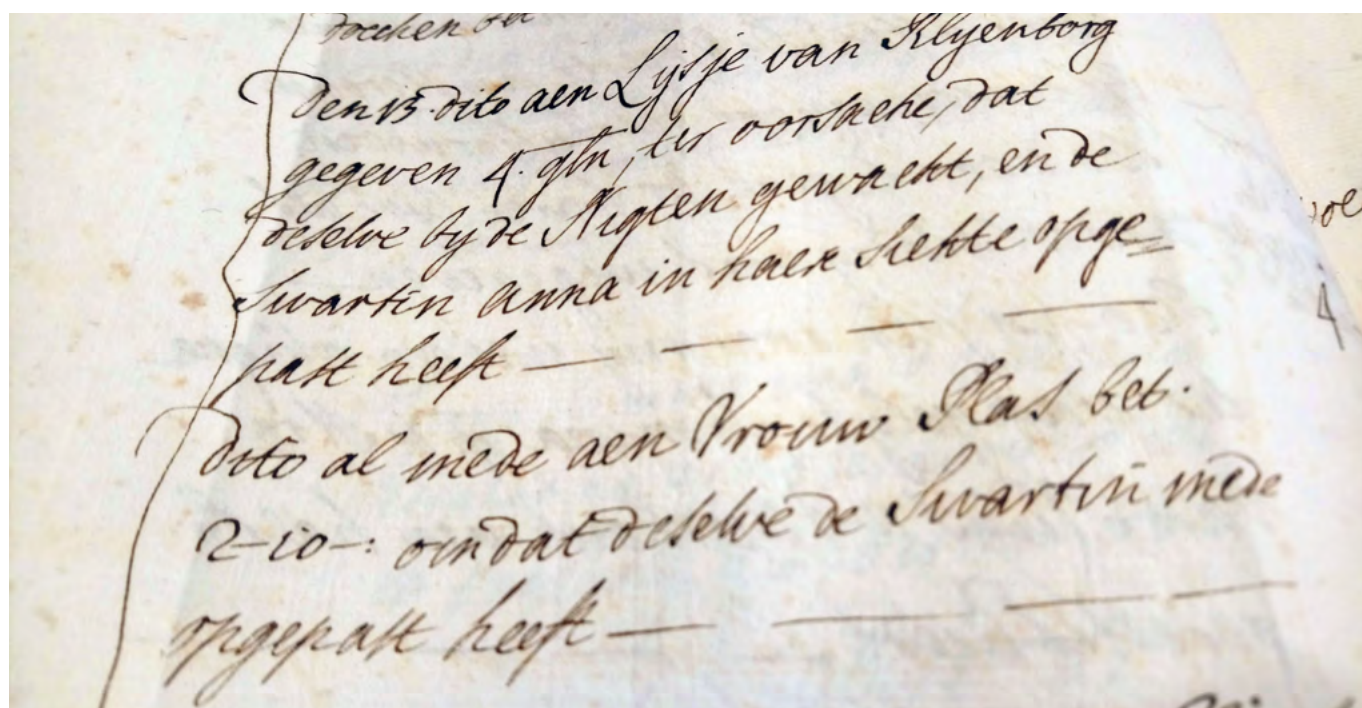 den 13. dito aen Lijsje van Klijenborg
gegeven 4. gln, ter oorsache, dat
deselve by de Nigten gewacht, en de
Swartin Anna in haer siekte opge=
past heeft
4
dito al mede aen Vrouw Plas bet.
2-10-: omdat deselve de Swartin mede
opgepast heeft